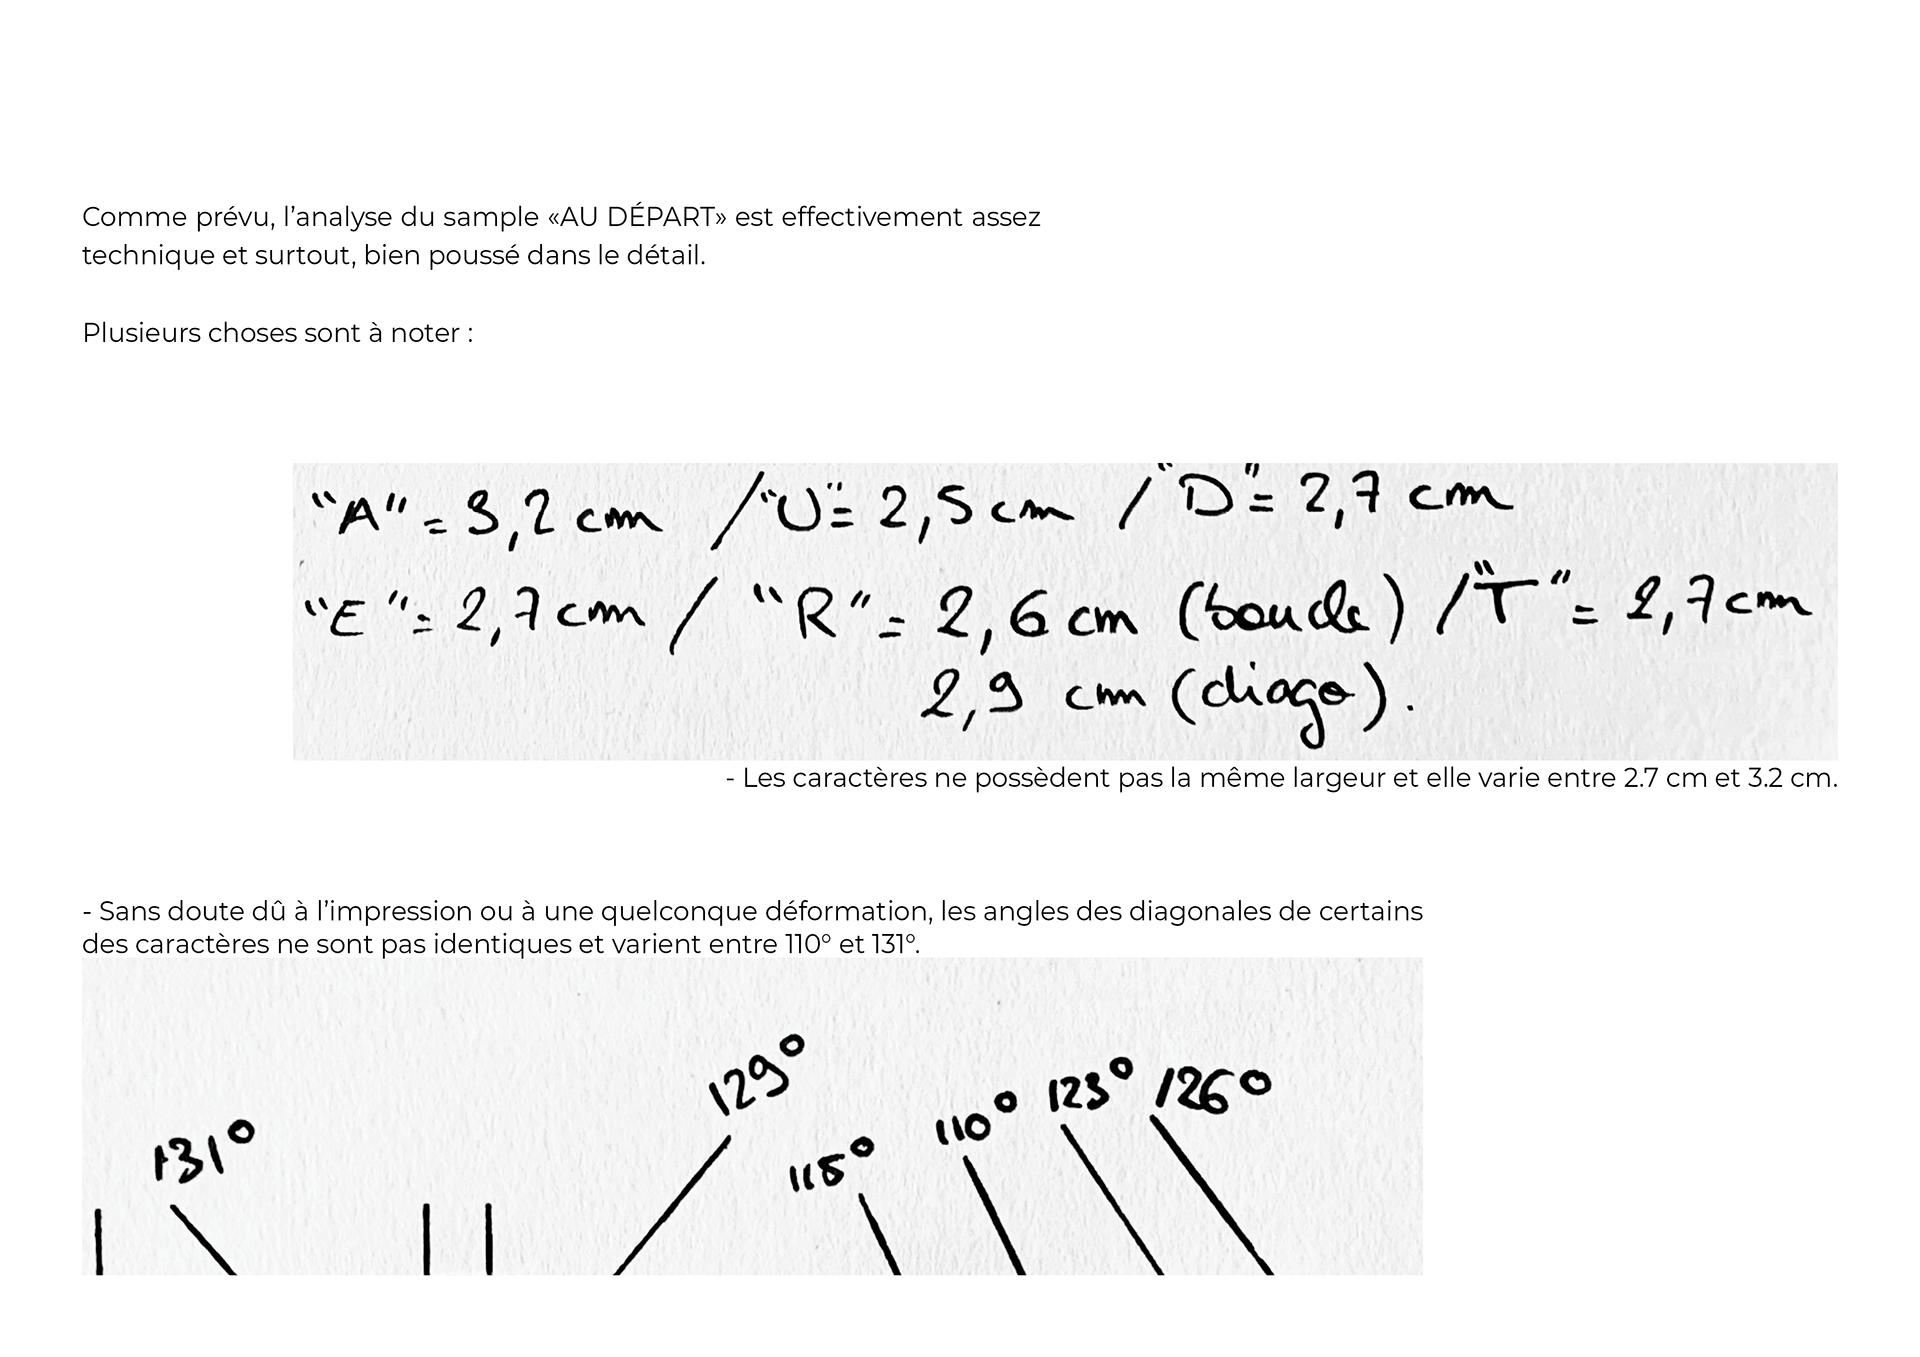 Comme prévu, l’analyse du sample «AU DÉPART» est effectivement assez
technique et surtout, bien poussé dans le détail.
Plusieurs choses sont à noter :
"A" = 3,2 cm / "U" = 2,5 cm / "D" = 2,7 cm
"E" = 2,7 cm / "R" = 2,6 cm (boucle) / "T" = 2,7 cm
2,9 cm (diago).
- Les caractères ne possèdent pas la même largeur et elle varie entre 2.7 cm et 3.2 cm.
- Sans doute dû à l’impression ou à une quelconque déformation, les angles des diagonales de certains
des caractères ne sont pas identiques et varient entre 110° et 131°.
131°
129°
115°
110°
123°
126°